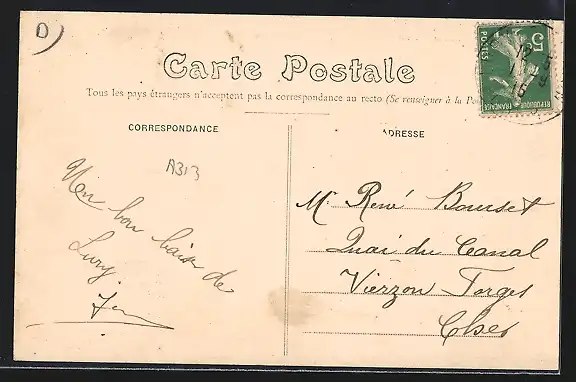 D
Carte Postale
Tous les pays étrangers n'acceptent pas la correspondance au recto (Se renseigner à la Po
CORRESPONDANCE
ADRESSE
A313
Un bon baiser de
Lury
Mr René Bourset
Quai du Canal
Vierzon Forges
Cher
5
POSTES
REPUBLIQUE FRANÇAISE